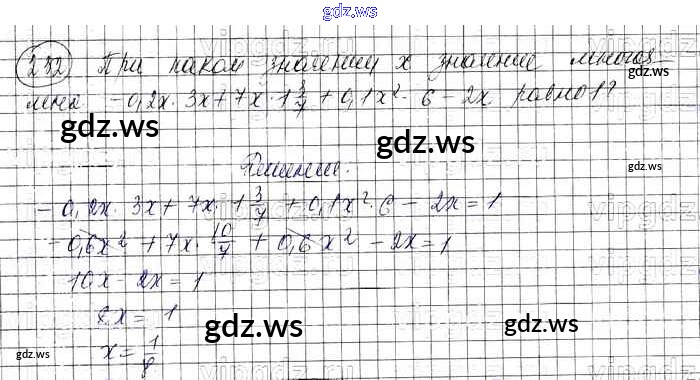 gdz.ws
232 При каком значении x значение многоч
gdz.ws
лена -0,2x · 3x + 7x · 1 3/7 + 0,1x² · 6 - 2x равно 1?
gdz.ws gdz.ws
Решение:
gdz.ws
-0,2x · 3x + 7x · 1 3/7 + 0,1x² · 6 - 2x = 1
-0,6x² + 7x · 10/7 + 0,6x² - 2x = 1
10x - 2x = 1
8x = 1
gdz.ws gdz.ws
x = 1/8
gdz.ws gdz.ws